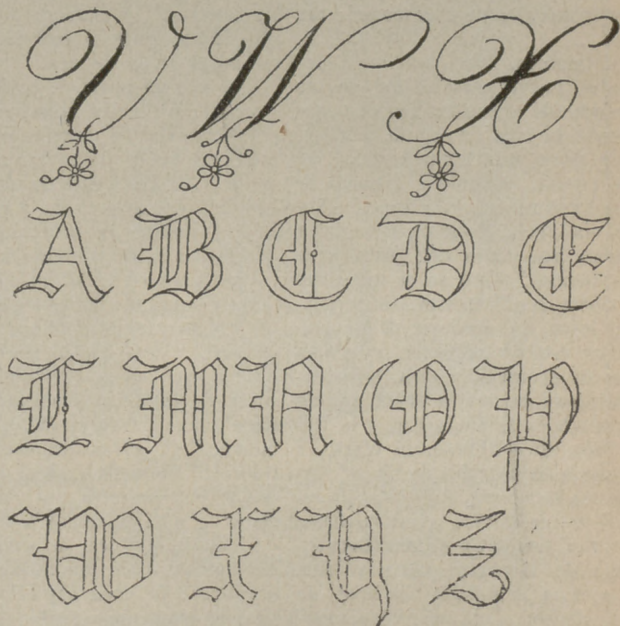 V W X
A B C D E
L M N O P
W X Y Z